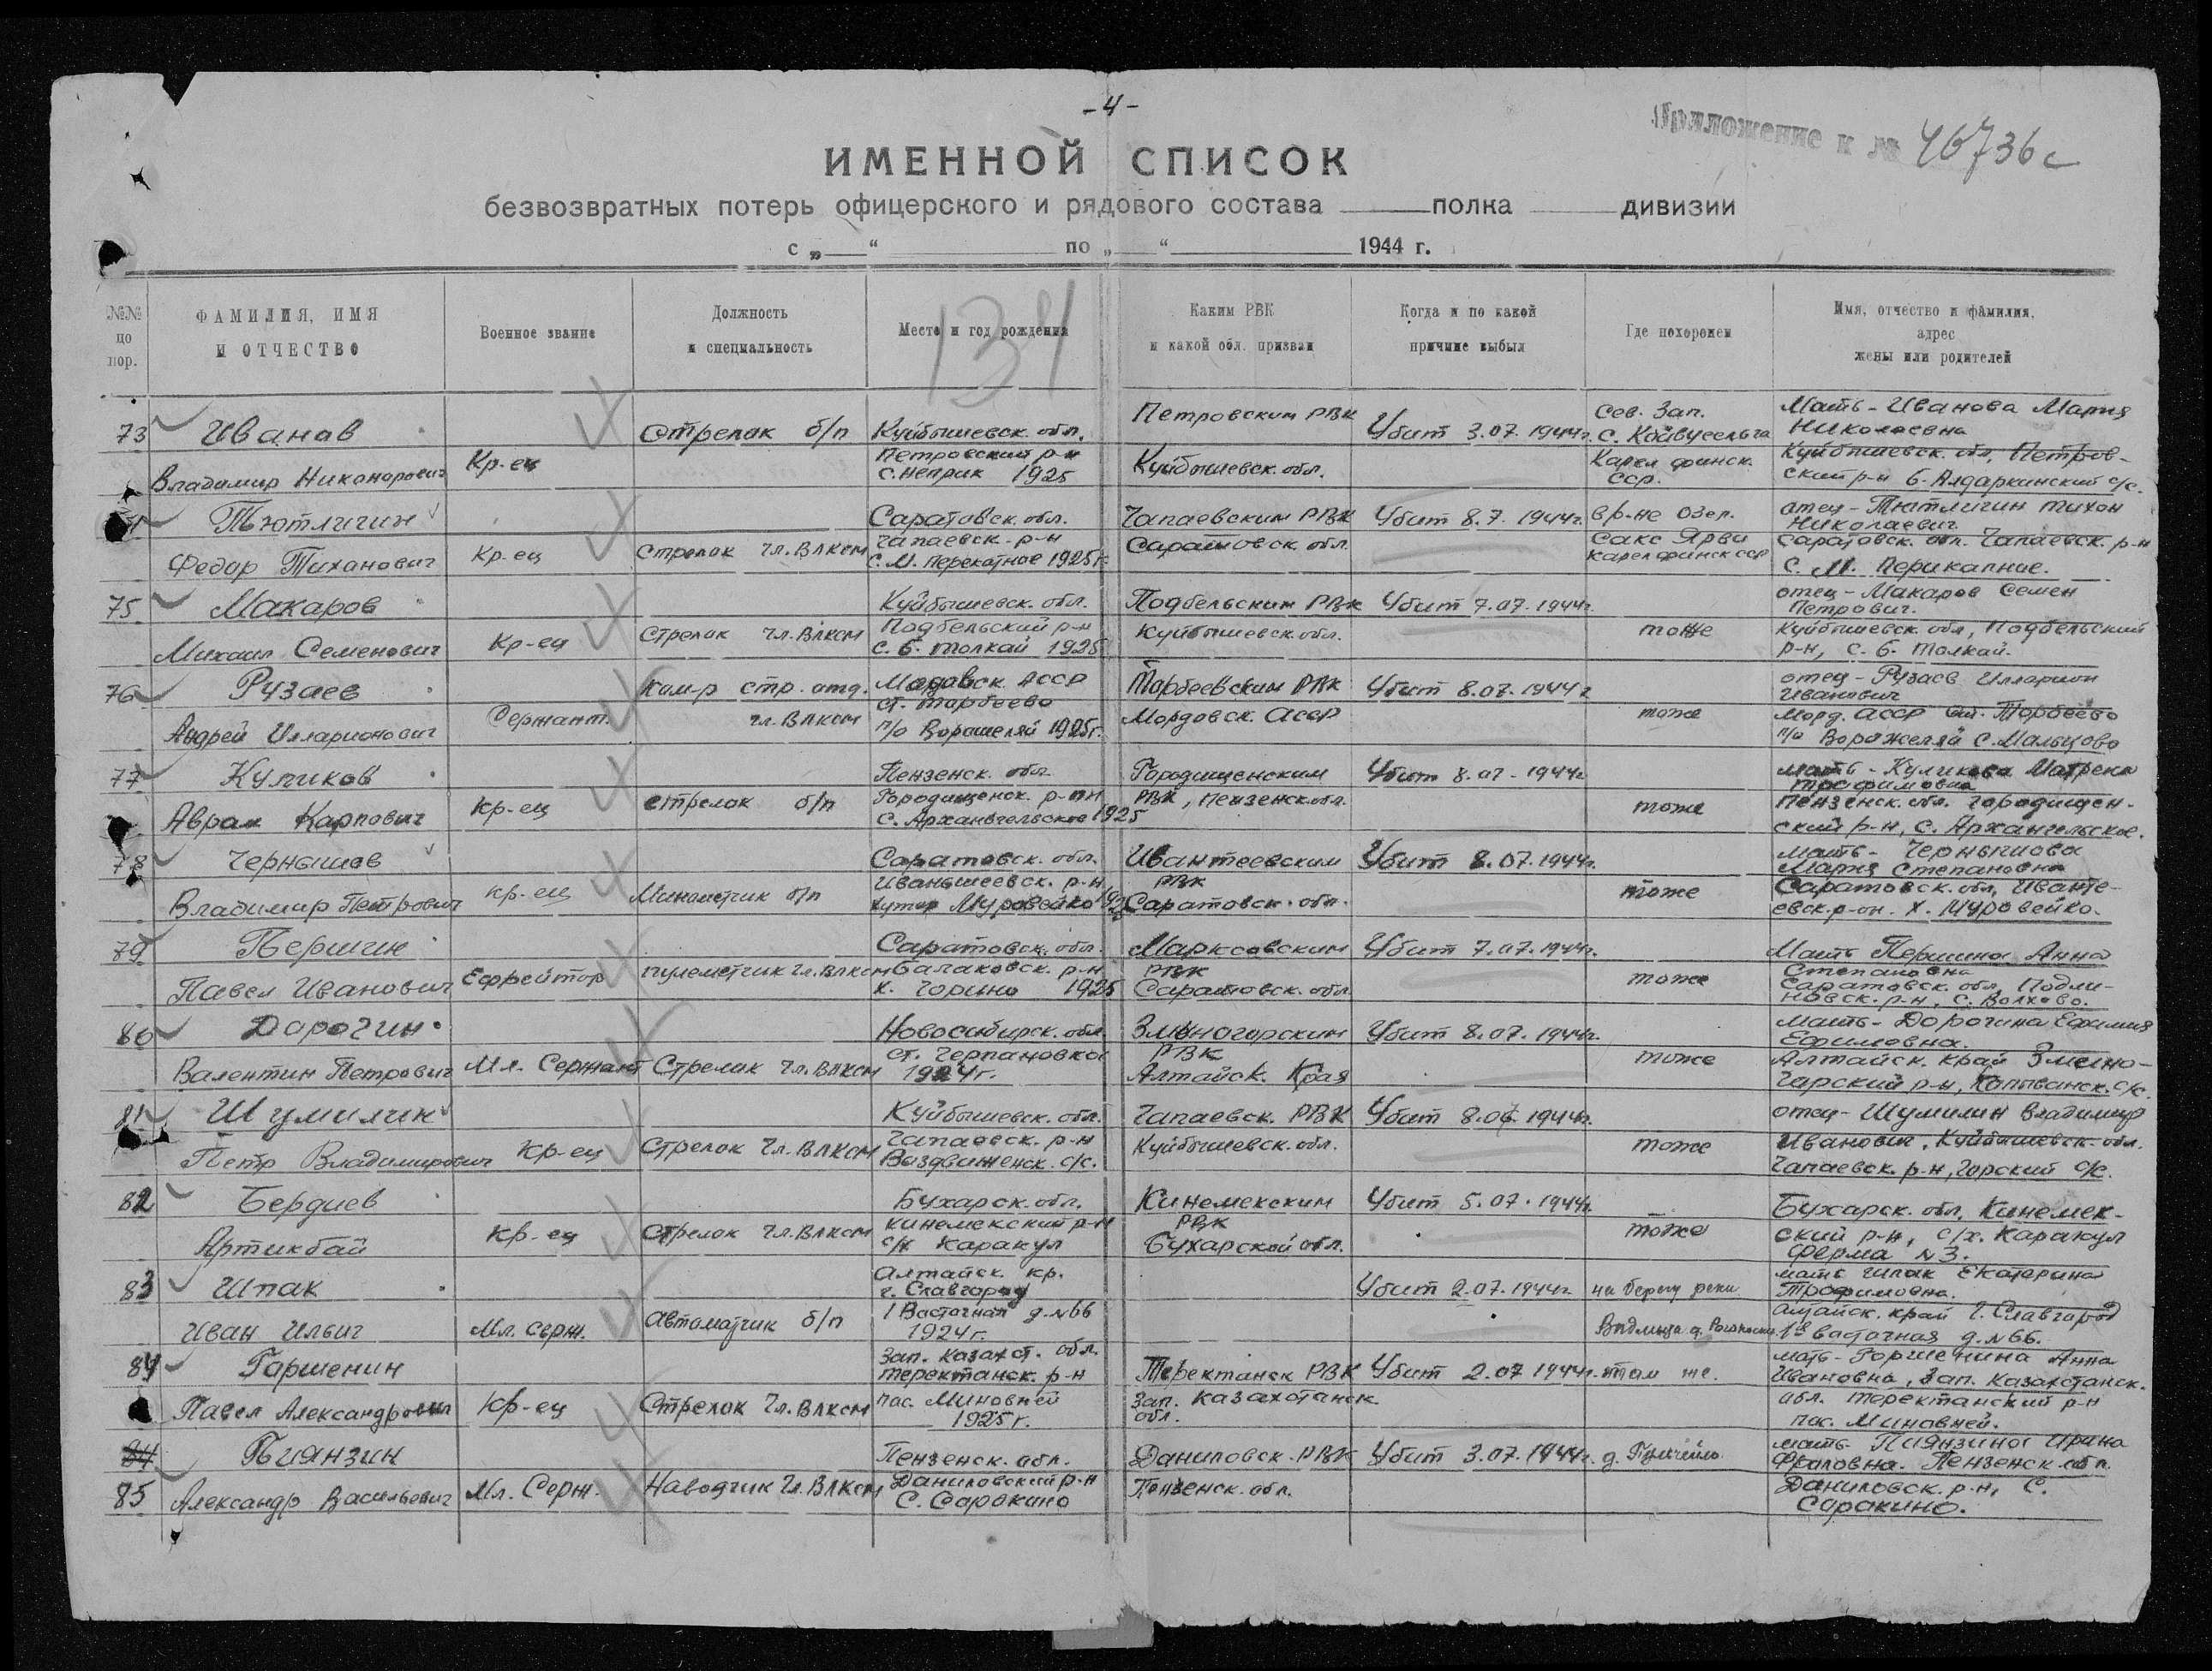 -4-
Приложение к № 46736с
ИМЕННОЙ СПИСОК
безвозвратных потерь офицерского и рядового состава полка дивизии
с „ “ по „ “ 1944 г.
134
№№ по пор.
ФАМИЛИЯ, ИМЯ И ОТЧЕСТВО
Военное звание
Должность и специальность
Место и год рождения
Каким РВК и какой обл. призван
Когда и по какой причине выбыл
Где похоронен
Имя, отчество и фамилия, адрес жены или родителей
73 Иванов Стрелок б/п Куйбышевск. обл. Петровским РВК Убит 3.07.1944г. Сев. Зап. с. Койвусельга Мать - Иванова Мария Николаевна
Владимир Никонорович Кр-ец Петровский р-н с. Неприк 1925 Куйбышевск. обл. Карел финск. сср. Куйбышевск. обл, Петров-
ский р-н б. Алдаркинский с/с.
Тютлигин Саратовск. обл. Чапаевским РВК Убит 8.7.1944г. в р-не озер. отец - Тютлигин Тихон Николаевич
Федор Тиханович Кр-ец Стрелок Чл. ВЛКСМ Чапаевск. р-н Саратовск. обл. Сакс Ярви Саратовск. обл. Чапаевск. р-н
с. М. перекопное 1925г. Карел финск сср с. М. Перикапние.
75 Макаров Куйбышевск. обл. Подбельским РВК Убит 7.07.1944г. отец - Макаров Семен Петрович.
Михаил Семенович Кр-ец Стрелок Чл. ВЛКСМ Подбельский р-н Куйбышевск. обл. тоже Куйбышевск. обл, Подбельский
с. б. толкай 1925 р-н, с. б. толкай.
76 Рузаев Ком-р стр. отд. Мордовск. АССР Торбеевским РВК Убит 8.07.1944г отец - Рузаев Илларион Иванович
Андрей Илларионович Сержант. чл. ВЛКСМ ст. Торбеево Мордовск. АССР тоже Морд. АССР ст. Торбеево
п/о Ворошеляй 1925г. п/о Воражеляй с. Мальцово
77 Куликов Пензенск. обл. Городищенским Убит 8.07.1944г мать - Куликова Матрена Трофимовна
Аврам Карпович Кр-ец Стрелок б/п Городищенск. р-н РВК, Пензенск. обл. тоже Пензенск. обл. городищен-
с. Архангельское 1925 ский р-н, с. Архангельское.
78 Чернышов Саратовск. обл. Ивантеевским Убит 8.07.1944г. мать - Чернышова Мария Степановна
Владимир Петрович кр-ец Минометчик б/п Иваньтеевск. р-н РВК тоже Саратовск. обл, Иванте-
хутор Муровейко Саратовск. обл. евск. р-он. х. Муровейко.
79 Першин Саратовск. обл. Марксовским Убит 7.07.1944г. Мать Першина Анна Степановна
Павел Иванович Ефрейтор пулеметчик Чл. ВЛКСМ Балаковск. р-н РВК тоже Саратовск. обл, Подли-
х. Горино 1925 Саратовск. обл. новск. р-н, с. Волхово.
80 Дорогин Новосибирск. обл. Змеиногорским Убит 8.07.1944г. Мать - Дорогина Ефимия Ефимовна.
Валентин Петрович Мл. Сержант Стрелок Чл. ВЛКСМ ст. Черпановка РВК тоже Алтайск. край Змеино-
1924г. Алтайск. Края Гарский р-н, Колыванск. с/с.
81 Шумилин Куйбышевск. обл. Чапаевск. РВК Убит 8.07.1944г. отец - Шумилин Владимир
Петр Владимирович Кр-ец Стрелок Чл. ВЛКСМ Чапаевск. р-н Куйбышевск. обл. тоже Иванович, Куйбышевск. обл.
Воздвиженск. с/с. Чапаевск. р-н, Горский с/с.
82 Бердиев Бухарск. обл. Кинемекским Убит 5.07.1944г. Бухарск. обл, Кинемек-
Артикбай Кр-ец Стрелок Чл. ВЛКСМ Кинемекский р-н РВК тоже ский р-н, с/х. Каракул
с/х Каракул Бухарской обл. Ферма № 3.
83 Шпак Алтайск. кр. г. Славгород Убит 2.07.1944г на берегу реки мать Шпак Екатерина Трофимовна.
Иван Ильич Мл. серж. Автоматчик б/п 1 Васточная д. № 66 Видлица Алтайск. край г. Славгород
1924г. 1я васточная д. № 66.
84 Гаршенин Зап. Казахст. обл. Теректанск РВК Убит 2.07 1944г. там же. мать - Горшенина Анна
Павел Александрович Кр-ец Стрелок Чл. ВЛКСМ теректанск. р-н Зап. Казахстанск. обл. Ивановна, Зап. Казахстанск.
пос. Миновней 1925г. обл. теректанский р-н
пос. Миновней.
84 Пиянзин Пензенск. обл. Даниловск. РВК Убит 3.07.1944г. мать - Пиянзина Ирина
85 Александр Васильевич Мл. Серж. Наводчик Чл. ВЛКСМ Даниловский р-н Пензенск. обл. Фроловна. Пензенск. обл.
С. Сорокино Даниловск. р-н, С.
Сорокино.